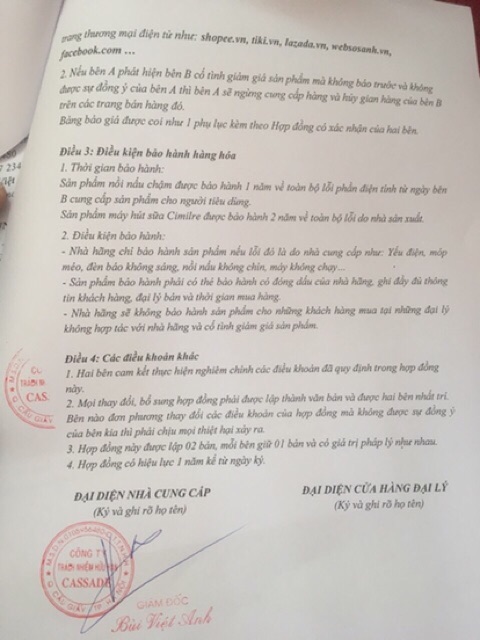 trang thương mại điện tử như: shopee.vn, tiki.vn, lazada.vn, websosanh.vn,
facebook.com ...
2. Nếu bên A phát hiện bên B cố tình giảm giá sản phẩm mà không báo trước và không
được sự đồng ý của bên A thì bên A sẽ ngừng cung cấp hàng và hủy gian hàng của bên B
trên các trang bán hàng đó.
Bảng báo giá được coi như 1 phụ lục kèm theo Hợp đồng có xác nhận của hai bên.
Điều 3: Điều kiện bảo hành hàng hóa
1. Thời gian bảo hành:
Sản phẩm nồi nấu chậm được bảo hành 1 năm về toàn bộ lỗi phần điện tính từ ngày bên
B cung cấp sản phẩm cho người tiêu dùng.
Sản phẩm máy hút sữa Cimilre được bảo hành 2 năm về toàn bộ lỗi do nhà sản xuất.
2. Điều kiện bảo hành:
- Nhà hãng chỉ bảo hành sản phẩm nếu lỗi đó là do nhà cung cấp như: Yếu điện, móp
méo, đèn báo không sáng, nồi nấu không chín, máy không chạy...
- Sản phẩm bảo hành phải có thẻ bảo hành có đóng dấu của nhà hãng, ghi đầy đủ thông
tin khách hàng, đại lý bán và thời gian mua hàng.
- Nhà hãng sẽ không bảo hành sản phẩm cho những khách hàng mua tại những đại lý
không hợp tác với nhà hãng và cố tình giảm giá sản phẩm.
Điều 4: Các điều khoản khác
1. Hai bên cam kết thực hiện nghiêm chỉnh các điều khoản đã quy định trong hợp đồng
này.
2. Mọi thay đổi, bổ sung hợp đồng phải được lập thành văn bản và được hai bên nhất trí.
Bên nào đơn phương thay đổi các điều khoản của hợp đồng mà không được sự đồng ý
của bên kia thì phải chịu mọi thiệt hại xảy ra.
3. Hợp đồng này được lập 02 bản, mỗi bên giữ 01 bản và có giá trị pháp lý như nhau.
4. Hợp đồng có hiệu lực 1 năm kể từ ngày ký.
ĐẠI DIỆN NHÀ CUNG CẤP
(Ký và ghi rõ họ tên)
ĐẠI DIỆN CỬA HÀNG ĐẠI LÝ
(Ký và ghi rõ họ tên)
CÔNG TY
TRÁCH NHIỆM HỮU HẠN
CASSADE
GIÁM ĐỐC
Bùi Việt Anh